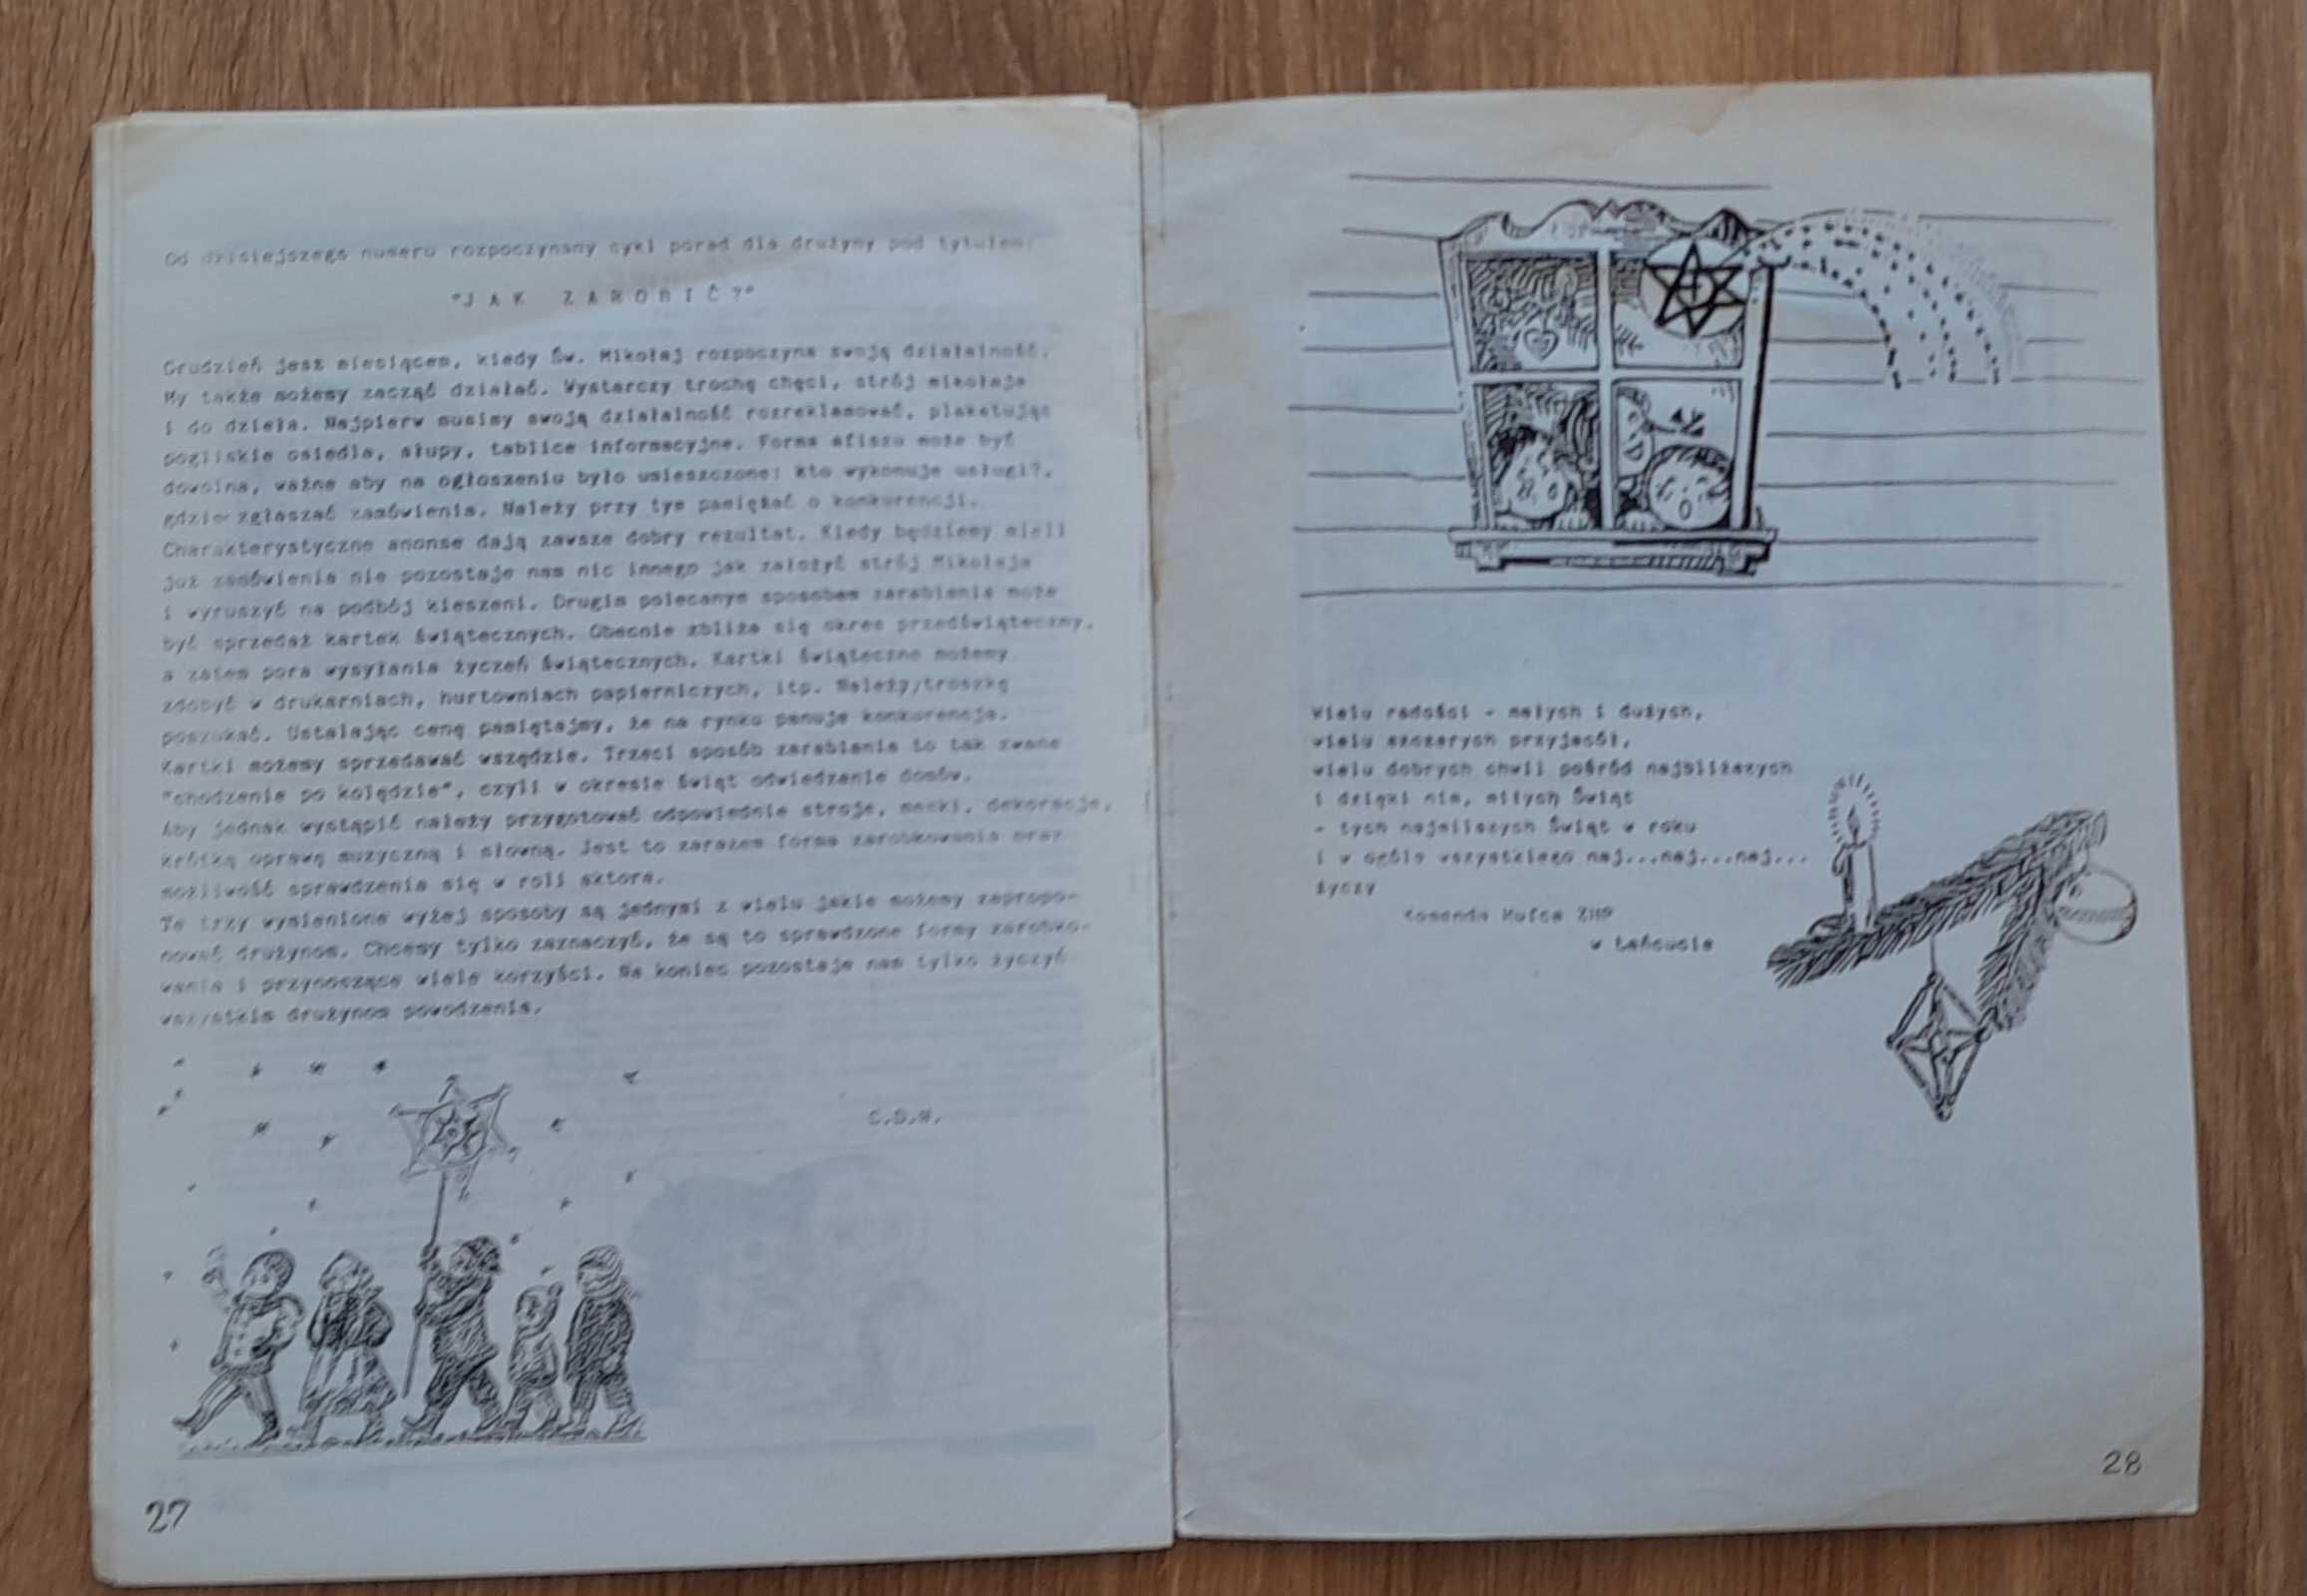 Od dzisiejszego numeru rozpoczynamy cykl porad dla drużyny pod tytułem:
"J A K Z A R O B I Ć ?"
Grudzień jest miesiącem, kiedy Św. Mikołaj rozpoczyna swoją działalność.
My także możemy zacząć działać. Wystarczy trochę chęci, strój mikołaja
i do dzieła. Najpierw musimy swoją działalność rozreklamować, plakatując
pogliskie osiedla, słupy, tablice informacyjne. Forma afiszu może być
dowolna, ważne aby na ogłoszeniu było umieszczone: kto wykonuje usługi?,
gdzie zgłaszać zamówienia. Należy przy tym pamiętać o konkurencji.
Charakterystyczne anonse dają zawsze dobry rezultat. Kiedy będziemy mieli
już zamówienia nie pozostaje nam nic innego jak założyć strój Mikołaja
i wyruszyć na podbój kieszeni. Drugim polecanym sposobem zarabiania może
być sprzedaż kartek świątecznych. Obecnie zbliża się okres przedświąteczny,
a zatem pora wysyłania życzeń świątecznych. Kartki świąteczne możemy
zdobyć w drukarniach, hurtowniach papierniczych, itp. Należy/troszkę
poszukać. Ustalając cenę pamiętajmy, że na rynku panuje konkurencja.
Kartki możemy sprzedawać wszędzie. Trzeci sposób zarabiania to tak zwane
"chodzenie po kolędzie", czyli w okresie świąt odwiedzanie domów.
Aby jednak wystąpić należy przygotować odpowiednie stroje, maski, dekoracje,
krótką oprawę muzyczną i słowną. Jest to zarazem forma zarobkowania oraz
możliwość sprawdzenia się w roli aktora.
Te trzy wymienione wyżej sposoby są jednymi z wielu jakie możemy zapropo-
nować drużynom. Chcemy tylko zaznaczyć, że są to sprawdzone formy zarobko-
wania i przynoszące wiele korzyści. Na koniec pozostaje nam tylko życzyć
wszystkim drużynom powodzenia.
27
Wielu radości - małych i dużych,
wielu szczerych przyjaciół,
wielu dobrych chwil pośród najbliższych
i dzięki nim, miłych Świąt
- tych najmilszych Świąt w roku
i w ogóle wszystkiego naj...naj...naj...
życzy
Komenda Hufca ZHP
w Łańcucie
28